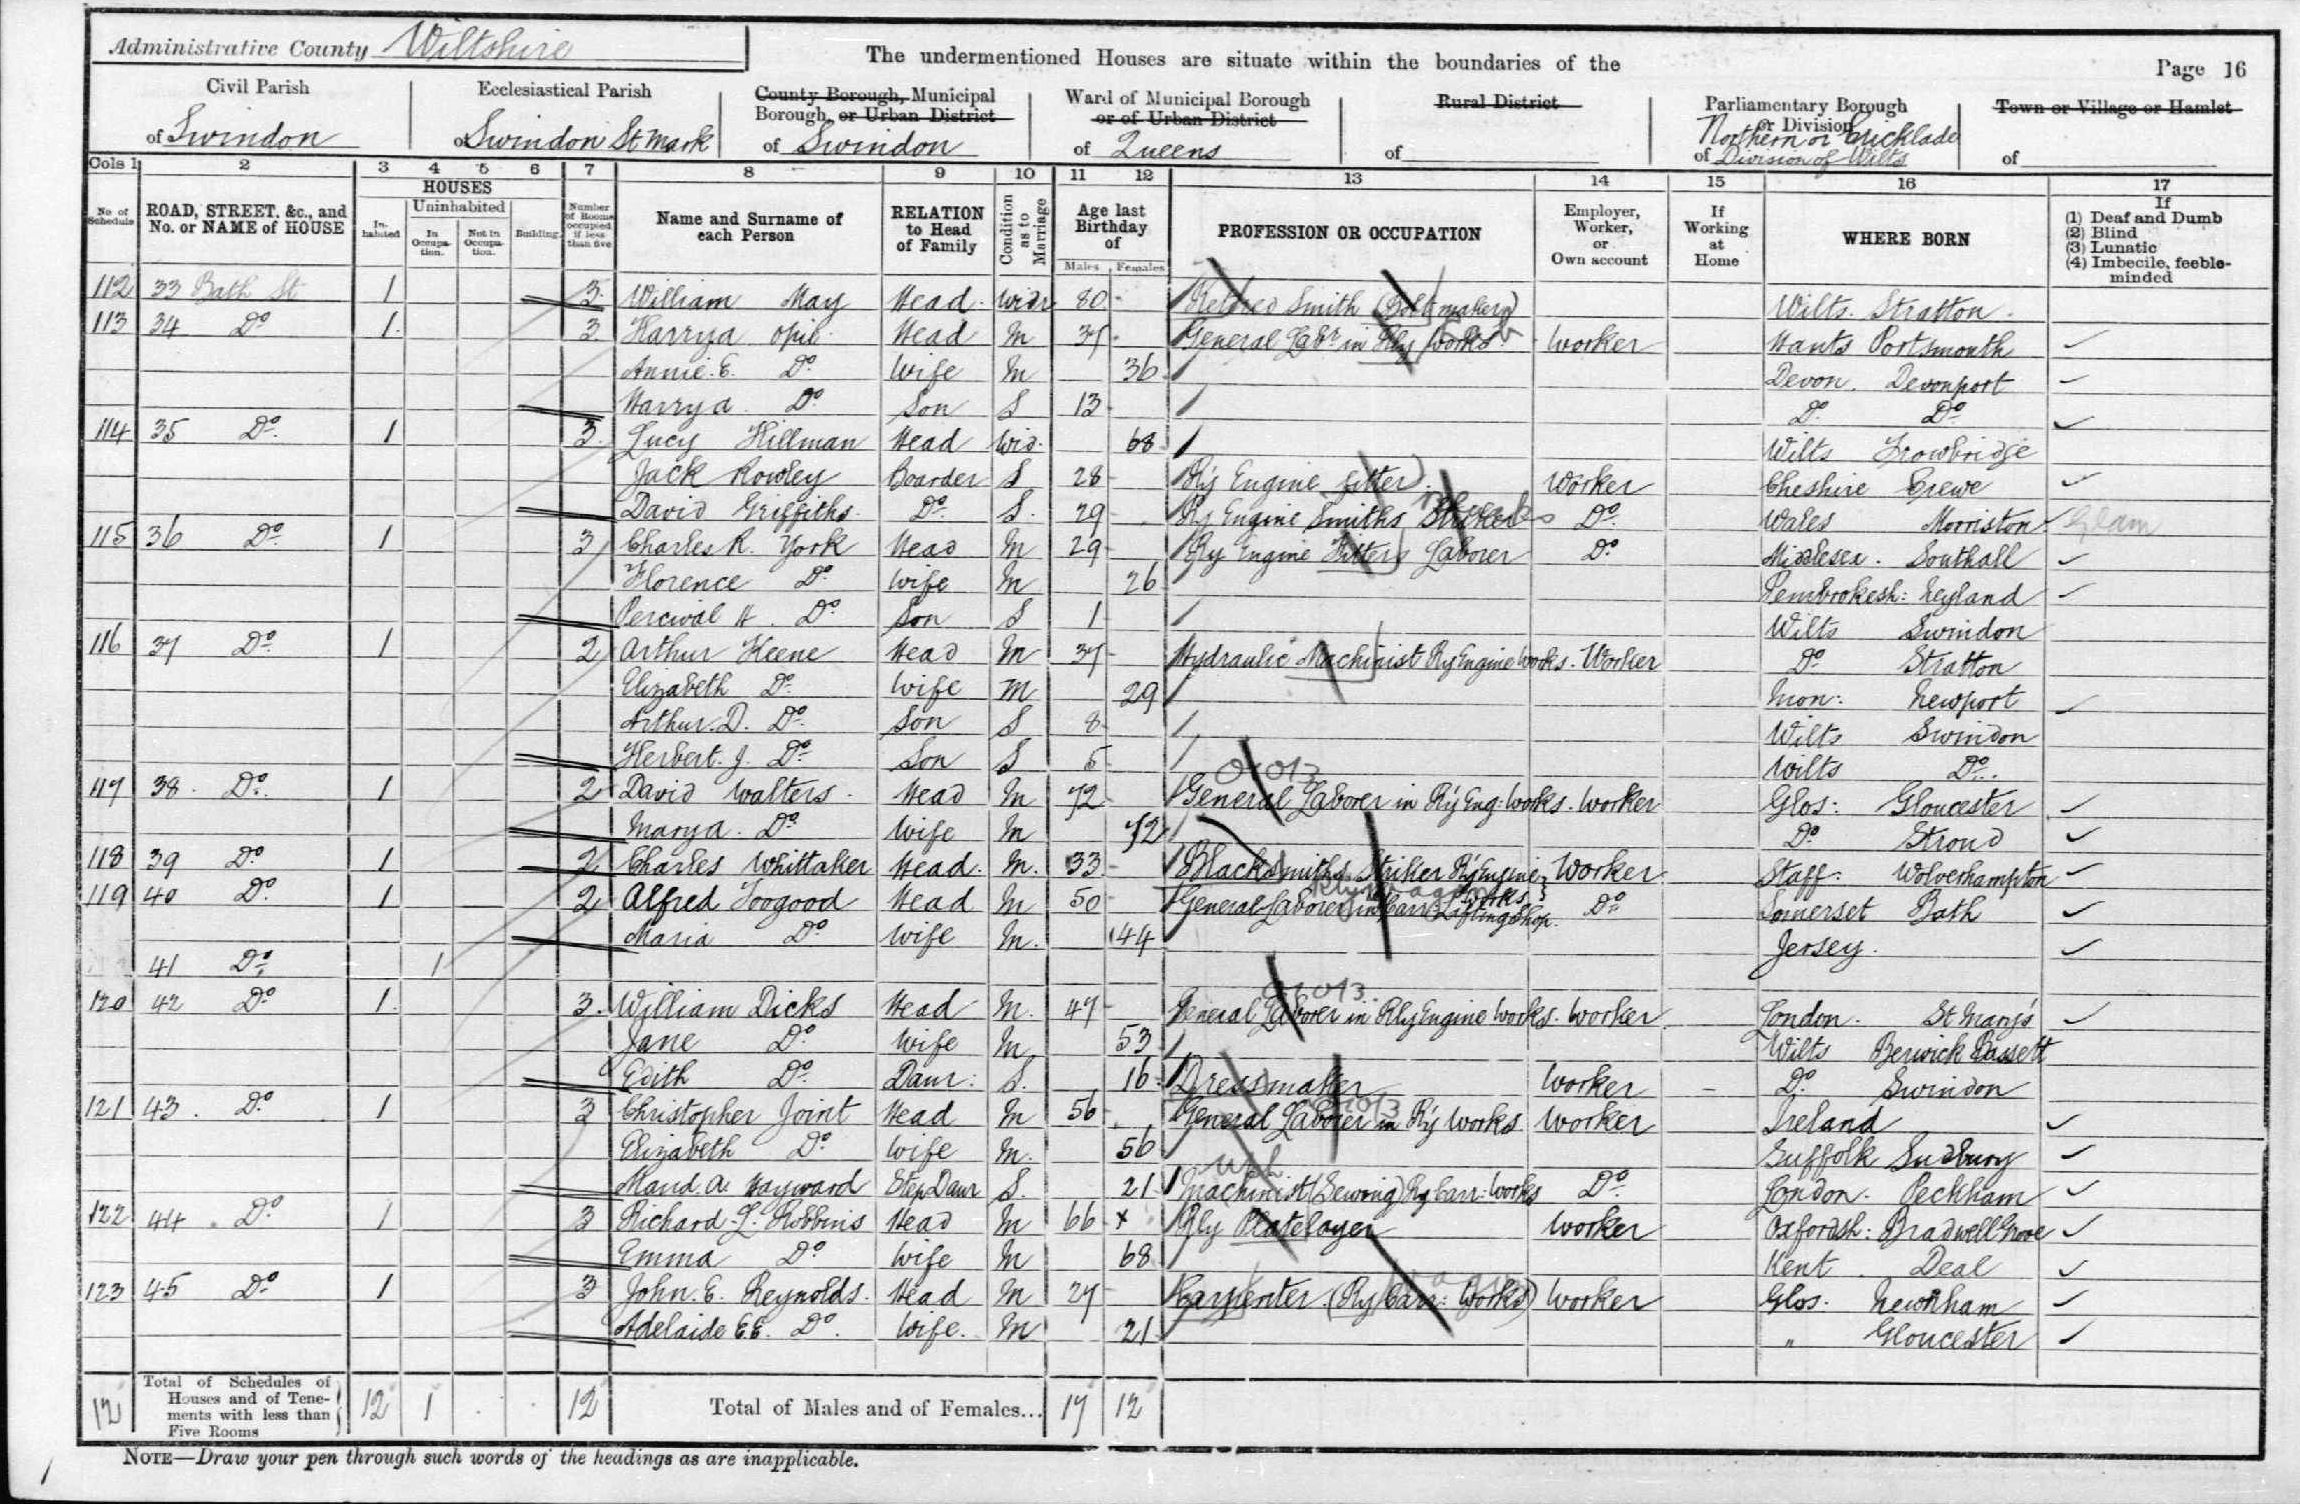 Administrative County Wiltshire
The undermentioned Houses are situate within the boundaries of the
Page 16
Civil Parish of Swindon
Ecclesiastical Parish of Swindon St Mark
County Borough, Municipal Borough, or Urban District of Swindon
Ward of Municipal Borough or of Urban District of Queens
Rural District of
Parliamentary Borough or Division of Northern or Cricklade Division of Wilts
Town or Village or Hamlet of
Cols 1 2 3 4 5 6 7 8 9 10 11 12 13 14 15 16 17
No. of Schedule
ROAD, STREET, &c., and No. or NAME of HOUSE
HOUSES
Inhabited
Uninhabited
In Occupation.
Not in Occupation.
Building
Number of Rooms occupied if less than five
Name and Surname of each Person
RELATION to Head of Family
Condition as to Marriage
Age last Birthday of
Males Females
PROFESSION OR OCCUPATION
Employer, Worker, or Own account
If Working at Home
WHERE BORN
If
(1) Deaf and Dumb
(2) Blind
(3) Lunatic
(4) Imbecile, feeble-minded
112 33 Bath St 1 3 William May Head Widr 80 Retired Smith (Bolt maker) Wilts. Stratton
113 34 Do 1 3 Harry A Opie Head M 37 General Labr in Rly Works Worker Hants Portsmouth
Annie. E. Do Wife M 36 Devon. Devonport
Harry A. Do Son S 13 Do Do
114 35 Do 1 3 Lucy Hillman Head Wid. 68 Wilts Trowbridge
Jack Rowley Boarder S 28 Ry Engine fitter Worker Cheshire Crewe
David Griffiths Do S. 29 Ry Engine Smiths Striker Do Wales Morriston Glam
115 36 Do 1 3 Charles R. York Head M 29 Ry Engine Fitters Laborer Do Middlesex. Southall
Florence Do Wife M 26 Pembrokesh: Neyland
Percival H. Do Son S 1 Wilts Swindon
116 37 Do 1 2 Arthur Keene Head M 37 Hydraulic Machinist Ry Engine Works. Worker Do Stratton
Elizabeth Do Wife M 29 Mon: Newport
Arthur. D. Do Son S 8 Wilts Swindon
Herbert. J. Do Son S 6 Wilts Do
117 38 Do 1 2 David Walters Head M 72 General Laborer in Ry Eng: Works. Worker Glos: Gloucester
Mary A. Do Wife M 72 Do Stroud
118 39 Do 1 2 Charles Whittaker Head M. 33 Blacksmiths Striker Ry Engine Works Worker Staff: Wolverhampton
119 40 Do 1 2 Alfred Toogood Head M 50 General Laborer in Carr: Lifting Shop. Do Somerset Bath
Maria Do Wife M. 44 Jersey.
41 Do 1
120 42 Do 1 3 William Dicks Head M. 47 General Laborer in Rly Engine Works. Worker London. St Mary's
Jane Do Wife M 53 Wilts Berwick Bassett
Edith Do Daur: S. 16 Dressmaker Worker - Do Swindon
121 43 Do 1 3 Christopher Joint Head M 56 General Laborer in Ry Works Worker Ireland
Elizabeth Do Wife M. 56 Suffolk Sudbury
Maud. A. Hayward Step Daur S. 21 Machinist (Sewing) Ry Carr: Works Do London. Peckham
122 44 Do 1 3 Richard. L. Robbins Head M 66 x Rly Platelayer Worker Oxfordsh: Bradwell Grove
Emma Do Wife M 68 Kent Deal
123 45 Do 1 3 John. E. Reynolds. Head M 27 Carpenter (Ry Carr: Works) Worker Glos. Newnham
Adelaide E.E. Do. Wife. M 21 " Gloucester
12 Total of Schedules of Houses and of Tenements with less than Five Rooms 12 1 12 Total of Males and of Females... 17 12
NOTE—Draw your pen through such words of the headings as are inapplicable.